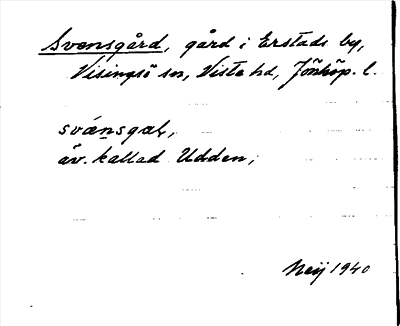 Svensgård, gård i Erstads by,
Visingsö sn, Vista hd, Jönköp. l.
svánsgaḷ,
äv. kallad Udden;
Neij 1940